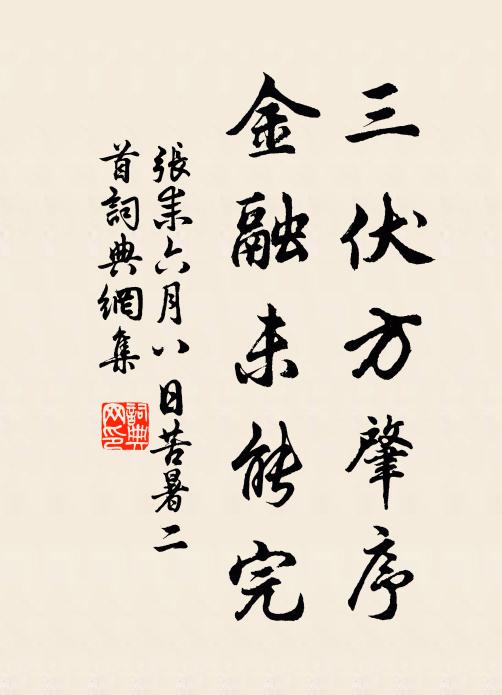 三伏方肇序
金融未能完
張耒六月八日苦暑二
首詞典網集
詞典网印